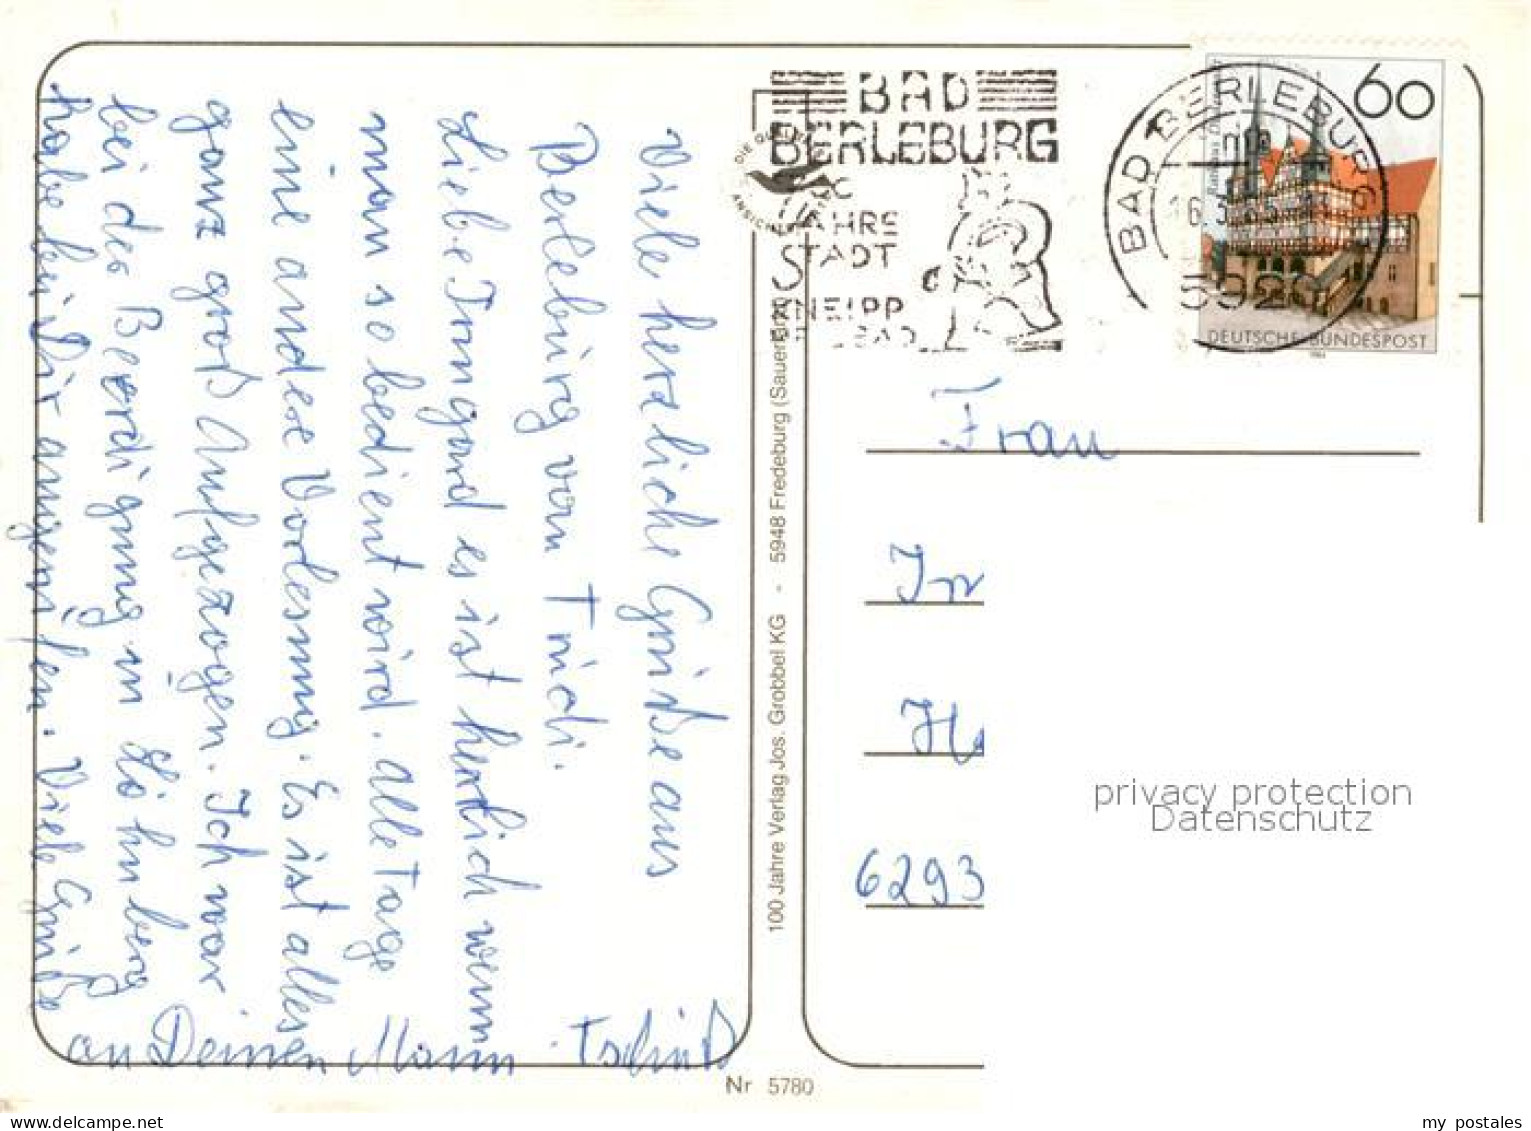 Viele herzliche Grüße aus
Berleburg von Trudi.
Liebe Irmgard es ist herrlich wenn
man so bedient wird. alle Tage
eine andere Vorlesung. Es ist alles
ganz groß Aufgezogen. Ich war
bei der Beerdigung in
habe bei Dir angerufen. Viele Grüße
an Deinen Mann. Tschüß
Nr 5780
100 Jahre Verlag Jos. Grobbel KG - 5948 Fredeburg (Sauerland)
BAD
BERLEBURG
JAHRE
STADT
KNEIPP
BAD
BAD BERLEBURG
5920
60
DEUTSCHE BUNDESPOST
Frau
6293
privacy protection
Datenschutz
my postales